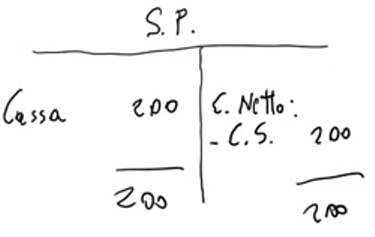 S.P.
Cassa 200 C. Netto:
- C.S. 200
200
200